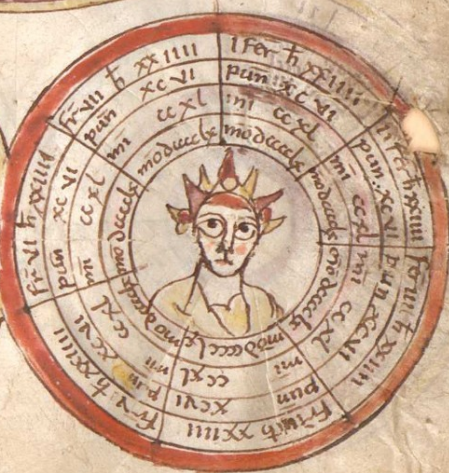 I fer ħ xxiiii
pun xcvi
mi ccxl
mo dcccclx
ii fer ħ xxiiii
pun xcvi
mi ccxl
mo dcccclx
fer iii ħ xxiiii
pun xcvi
mi ccxl
mo dcccclx
fr̄ iiii ħ xxiiii
pun xcvi
mi ccxl
mo dcccclx
fr̄ v ħ xxiiii
pun xcvi
mi ccxl
mo dcccclx
fr̄ vi ħ xxiiii
pun xcvi
mi ccxl
mo dcccclx
fr̄ vii ħ xxiiii
pun xcvi
mi ccxl
mo dcccclx